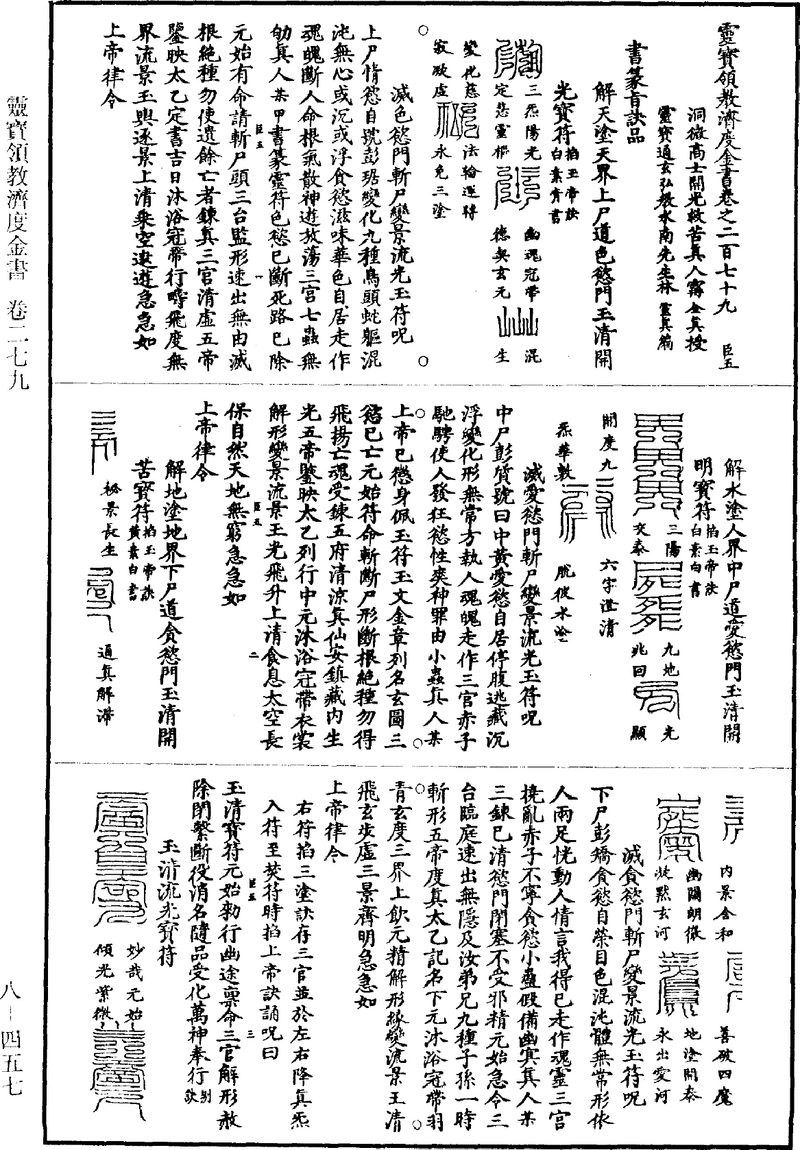 靈寶領教濟度金書 卷二七九
八-四五七
靈寶領教濟度金書卷之二百七十九 臣五
洞微高士開光救苦真人甯全真授
靈寶通玄弘教水南先生林靈真編
書篆旨訣品
解天塗天界上尸道色慾門玉清開
光寶符掐玉帝訣白素青書
三炁陽光
幽魂冠帶
混
定慧靈樞
德契玄元
生
變化慈
法輪運轉
寂歌虛
永免三塗
滅色慾門斬尸變景流光玉符呪
上尸情慾自號彭琚變化九種鳥頭蛇軀混
沌無心或沉或浮食慾滋味華色自居走作
魂魄斷人命根炁散神遊放蕩三宮七蟲無
劬真人某甲書篆靈符色慾已斷死路已除
元始有命請斬尸頭三台監形速出無由滅
根絕種勿使遺餘亡者鍊真三官清虛五帝
鑒映太乙定書吉日沐浴冠帶行疇飛度無
界流景玉輿逐景上清乘空遨遊急急如
上帝律令
解水塗人界中尸道愛慾門玉清開
明寶符掐玉帝訣白素白書
三陽
九地
光
交泰
兆回
顯
開度九
六字澄清
炁華敷
脫彼水淦
滅愛慾門斬尸變景流光玉符呪
中尸彭質號曰中黃愛慾自居停腹逃藏沉
浮變化形無常方執人魂魄走作三宮赤子
馳騁使人發狂慾性奕神罪由小蟲真人某
上帝已懲身佩玉符玉文金章列名玄圖三
慾已亡元始符命斬斷尸形斷根絕種勿得
飛揚亡魂受鍊五府清涼真仙安鎮藏內生
光五帝鑒映太乙列行中元沐浴冠帶衣裳
解形變景流景玉光飛升上清食息太空長
保自然天地無窮急急如
上帝律令
解地塗地界下尸道貪慾門玉清開
苦寶符掐玉帝訣黃素白書
秘景長生
通真解滯
內景合和
善破四魔
幽關朗徹
地塗開泰
凝黙玄河
永出愛河
滅貪慾門斬尸變景流光玉符呪
下尸彭矯貪慾自榮目色混沌體無常形依
人兩足恍動人情言我得已走作魂靈三宮
撓亂赤子不寧貪慾小蠱假備幽冥真人某
三鍊已清慾門閉塞不受邪精元始急令三
台臨庭速出無隱及汝弟兄九種子孫一時
斬形五帝度真太乙記名下元沐浴冠帶羽
青玄度三界上飲元精解形鍊變流景玉清
飛玄步虛三景齊明急急如
上帝律令
右符掐三塗訣存三官並於左右降真炁
入符至焚符時掐上帝訣誦呪曰
玉清寶符元始勑行幽途稟命三官解形赦
除閉繫斷役消名隨品受化萬神奉行別欵
玉清流光寶符
妙哉元始
傾光紫微